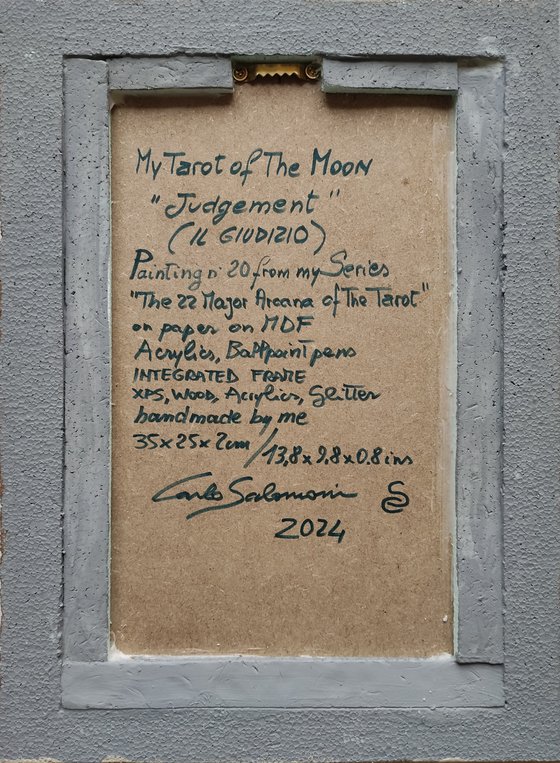 My Tarot of The Moon
"Judgement"
(IL GIUDIZIO)
Painting n° 20 from my Series
"The 22 Major Arcana of The Tarot"
on paper on MDF
Acrylics, Ballpoint pens
INTEGRATED FRAME
XPS, WOOD, Acrylics, Glitter
handmade by me
35x25x2cm/13,8x9,8x0.8 ins
Carlo Salomoni
2024